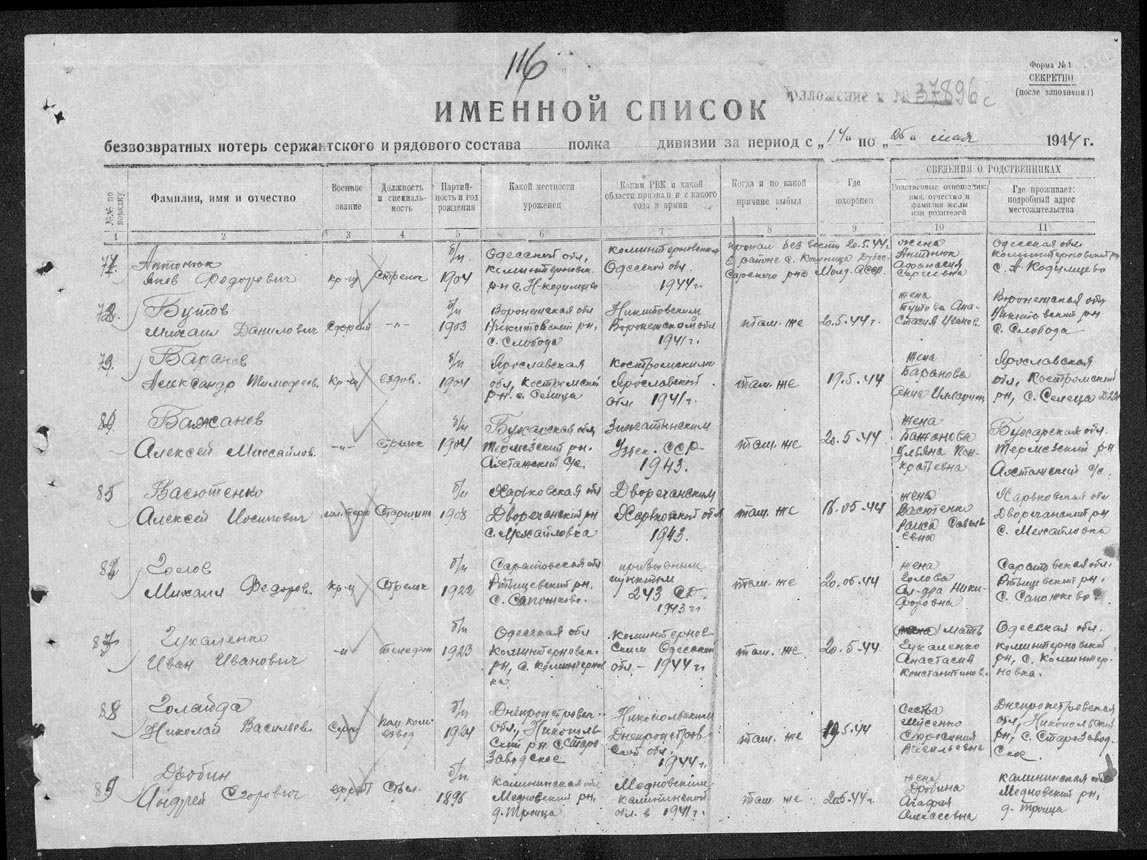 116
Форма №1
СЕКРЕТНО
(после заполнения)
Приложение к № 37896с
ИМЕННОЙ СПИСОК
беззвозвратных потерь сержантского и рядового состава полка дивизии за период с „14" по „ мая 1944 г.
№№ по порядку
Фамилия, имя и отчество
Военное звание
Должность и специальность
Партийность и год рождения
Какой местности уроженец
Каким РВК и какой области призван и с какого года в армии
Когда и по какой причине выбыл
Где похоронен
СВЕДЕНИЯ О РОДСТВЕННИКАХ
Родственные отношения: имя, отчество и фамилия жены или родителей
Где проживает: подробный адрес местожительства
1 2 3 4 5 6 7 8 9 10 11
Антонюк
Яков Федорович
кр-ц
Стрелок
б/п
1904
Одесской обл.
коминтерновск.
коминтерновским
Одесской обл.
1944 г.
пропал без вести 20.5.44.
в районе с.
жена
Антонюк
Афанасия
Сергеевна
Одесская обл
коминтерновский рн
Бутов
Михаил Данилович
Ефрей
-"-
б/п
1903
Воронежская обл
Никитовский рн,
с. Слобода
Никитовским
Воронежской обл
1941 г.
там. же
20.5.44 г.
жена
Воронежская обл
Никитовский рн
с. Слобода
79
Баранов
Александр Тимофеев.
кр-ц
ездов.
б/п
1904
Ярославская
обл, Костромский
Костромским
Ярославской
обл 1941 г.
там. же
19.5.44
жена
Баранова
Ярославская
обл, Костромский
80
Бажанов
Алексей
-"-
Стрелок
б/п
1904
Бухарская обл,
Узбек. ССР
1943.
там. же
20.5.44
жена
Бажанова
Ульяна Пан-
кратевна
Бухарская обл.
Васютенко
Алексей Иосипович
Старшин
б/п
1908
Харьковская обл
Двуречанский рн
с. Михайловка
Двуречанским
Харьковской обл
1943.
там. же
16.05.44
жена
Васютенко
Харьковская обл
Двуречанский рн
с. Михайловка
Голов
Михаил Федоров.
кр-ц
Стрелок
б/п
1922
Саратовская обл
Ртищевский рн.
с. Сапожково.
призывным
пунктом
243 СД.
1943 г
там. же
20.05.44
жена
Голова
Ники-
форовна
Саратовская обл.
Ртищевский рн.
с. Сапожково.
87
Гукаленко
Иван Иванович
-"-
Телефон
б/п
1923
Одесская обл
Коминтерновск.
рн, с. Коминтернов-
ка
Коминтернов-
ским Одесской
обл. - 1944 г
там. же
20.5.44
(жена) мать
Гукаленко
Анастасия
Константинов.
Одесская обл.
коминтерновский
рн, с. Коминтер-
новка.
88
Голайда
Николай Васильев.
Серж
Пом. ком.
взвод
б/п
1924
Днепропетровс-
обл, Никополь-
ский рн с. Старо
Заводское
Никопольским
Днепропетров-
ской обл.
1944 г.
там. же
19.5.44
сестра
Лисенко
Васильевна
Днепропетровская
обл, Никопольский
рн, с. СтароЗавод-
ское.
89
Дробин
Андрей Егорович
ефрей
Стрел.
б/п.
1896
Калининская обл
Медновский рн,
д. Троица
Медновским
Калининской
обл. в 1941 г.
там. же
20.5.44 г.
жена
Дробина
Агафия
Алексеевна
Калининская обл
Медновский рн,
д. Троица